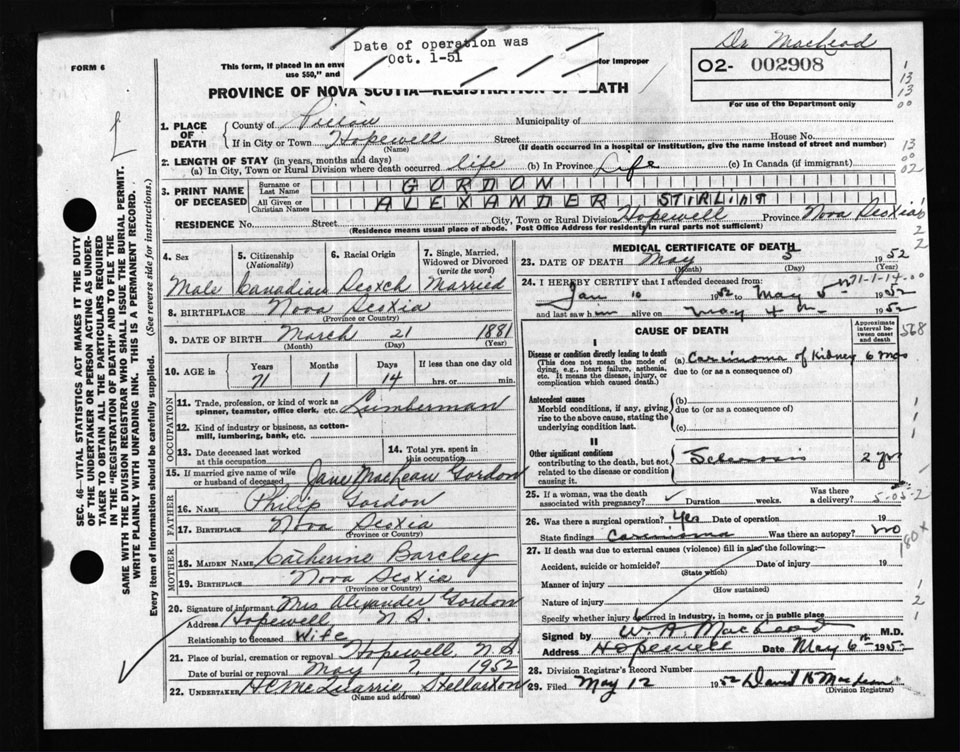 Date of operation was
Oct. 1-51
Dr MacLeod
FORM 6
This form, if placed in an enve
for improper
use $50," and
O2- 002908
PROVINCE OF NOVA SCOTIA—REGISTRATION OF DEATH
For use of the Department only
1. PLACE OF DEATH
County of Pictou Municipality of
If in City or Town Hopewell Street House No.
(Name) (If death occurred in a hospital or institution, give the name instead of street and number)
2. LENGTH OF STAY (in years, months and days)
(a) In City, Town or Rural Division where death occurred life (b) In Province Life (c) In Canada (if immigrant)
3. PRINT NAME OF DECEASED
Surname or Last Name GORDON
All Given or Christian Names ALEXANDER STIRLING
RESIDENCE No. Street City, Town or Rural Division Hopewell Province Nova Scotia
(Residence means usual place of abode. Post Office Address for residents in rural parts not sufficient)
4. Sex
5. Citizenship (Nationality)
6. Racial Origin
7. Single, Married, Widowed or Divorced (write the word)
Male Canadian Scotch Married
8. BIRTHPLACE Nova Scotia
(Province or Country)
9. DATE OF BIRTH March 21 1881
(Month) (Day) (Year)
10. AGE in Years Months Days If less than one day old
71 1 14 hrs. or min.
OCCUPATION
11. Trade, profession, or kind of work as spinner, teamster, office clerk, etc. Lumberman
12. Kind of industry or business, as cotton-mill, lumbering, bank, etc.
13. Date deceased last worked at this occupation
14. Total yrs. spent in this occupation
15. If married give name of wife or husband of deceased Jane MacLean Gordon
FATHER
16. Name Philip Gordon
17. Birthplace Nova Scotia
(Province or Country)
MOTHER
18. Maiden Name Catherine Barcley
19. Birthplace Nova Scotia
(Province or Country)
20. Signature of informant Mrs Alexander Gordon
Address Hopewell, N.S.
Relationship to deceased Wife
21. Place of burial, cremation or removal Hopewell, N.S
Date of burial or removal May 7, 1952
22. UNDERTAKER Stellarton
(Name and address)
MEDICAL CERTIFICATE OF DEATH
23. DATE OF DEATH May 5 1952
(Month) (Day) (Year)
24. I HEREBY CERTIFY that I attended deceased from:
71-1-14-00
Jan 10 1952 to May 5 1952
and last saw h im alive on May 4 1952
CAUSE OF DEATH
Approximate interval between onset and death
568
I
Disease or condition directly leading to death
(This does not mean the mode of dying, e.g., heart failure, asthenia, etc. It means the disease, injury, or complication which caused death.)
(a) Carcinoma of Kidney 6 mos
due to (or as a consequence of)
Antecedent causes
Morbid conditions, if any, giving rise to the above cause, stating the underlying condition last.
(b)
due to (or as a consequence of)
(c)
II
Other significant conditions
contributing to the death, but not related to the disease or condition causing it.
Sclerosis 2 yrs
25. If a woman, was the death associated with pregnancy? Duration weeks. Was there a delivery?
5-05-2
26. Was there a surgical operation? Yes Date of operation
State findings Carcinoma Was there an autopsy? no
180x
27. If death was due to external causes (violence) fill in also the following:—
Accident, suicide or homicide? Date of injury
(State which)
Manner of injury
(How sustained)
Nature of injury
Specify whether injury occurred in industry, in home, or in public place
Signed by W. A. MacLeod M.D.
Address Hopewell Date May 6th 1952
28. Division Registrar's Record Number
29. Filed May 12 1952 David H MacLean
(Division Registrar)
SEC. 46—VITAL STATISTICS ACT MAKES IT THE DUTY
OF THE UNDERTAKER OR PERSON ACTING AS UNDER-
TAKER TO OBTAIN ALL THE PARTICULARS REQUIRED
IN THE "REGISTRATION OF DEATH" AND TO FILE THE
SAME WITH THE DIVISION REGISTRAR WHO SHALL ISSUE THE BURIAL PERMIT.
WRITE PLAINLY WITH UNFADING INK. THIS IS A PERMANENT RECORD.
Every item of information should be carefully supplied. (See reverse side for instructions.)